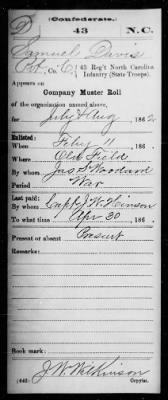 D (Confederate.)
43 N.C.
Samuel Davis
Pvt, Co. C, 43 Reg't North Carolina
Infantry (State Troops).
Appears on
Company Muster Roll
of the organization named above,
for July & Aug, 1862
Enlisted:
When Feby 11, 186
Where Old Field
By whom Jas S Woodard
Period War
Last paid:
By whom Capt J. W. Hinson
To what time Apr 30, 186
Present or absent Present
Remarks:
Book mark:
J. W. Wilkinson
(642) Copyist.